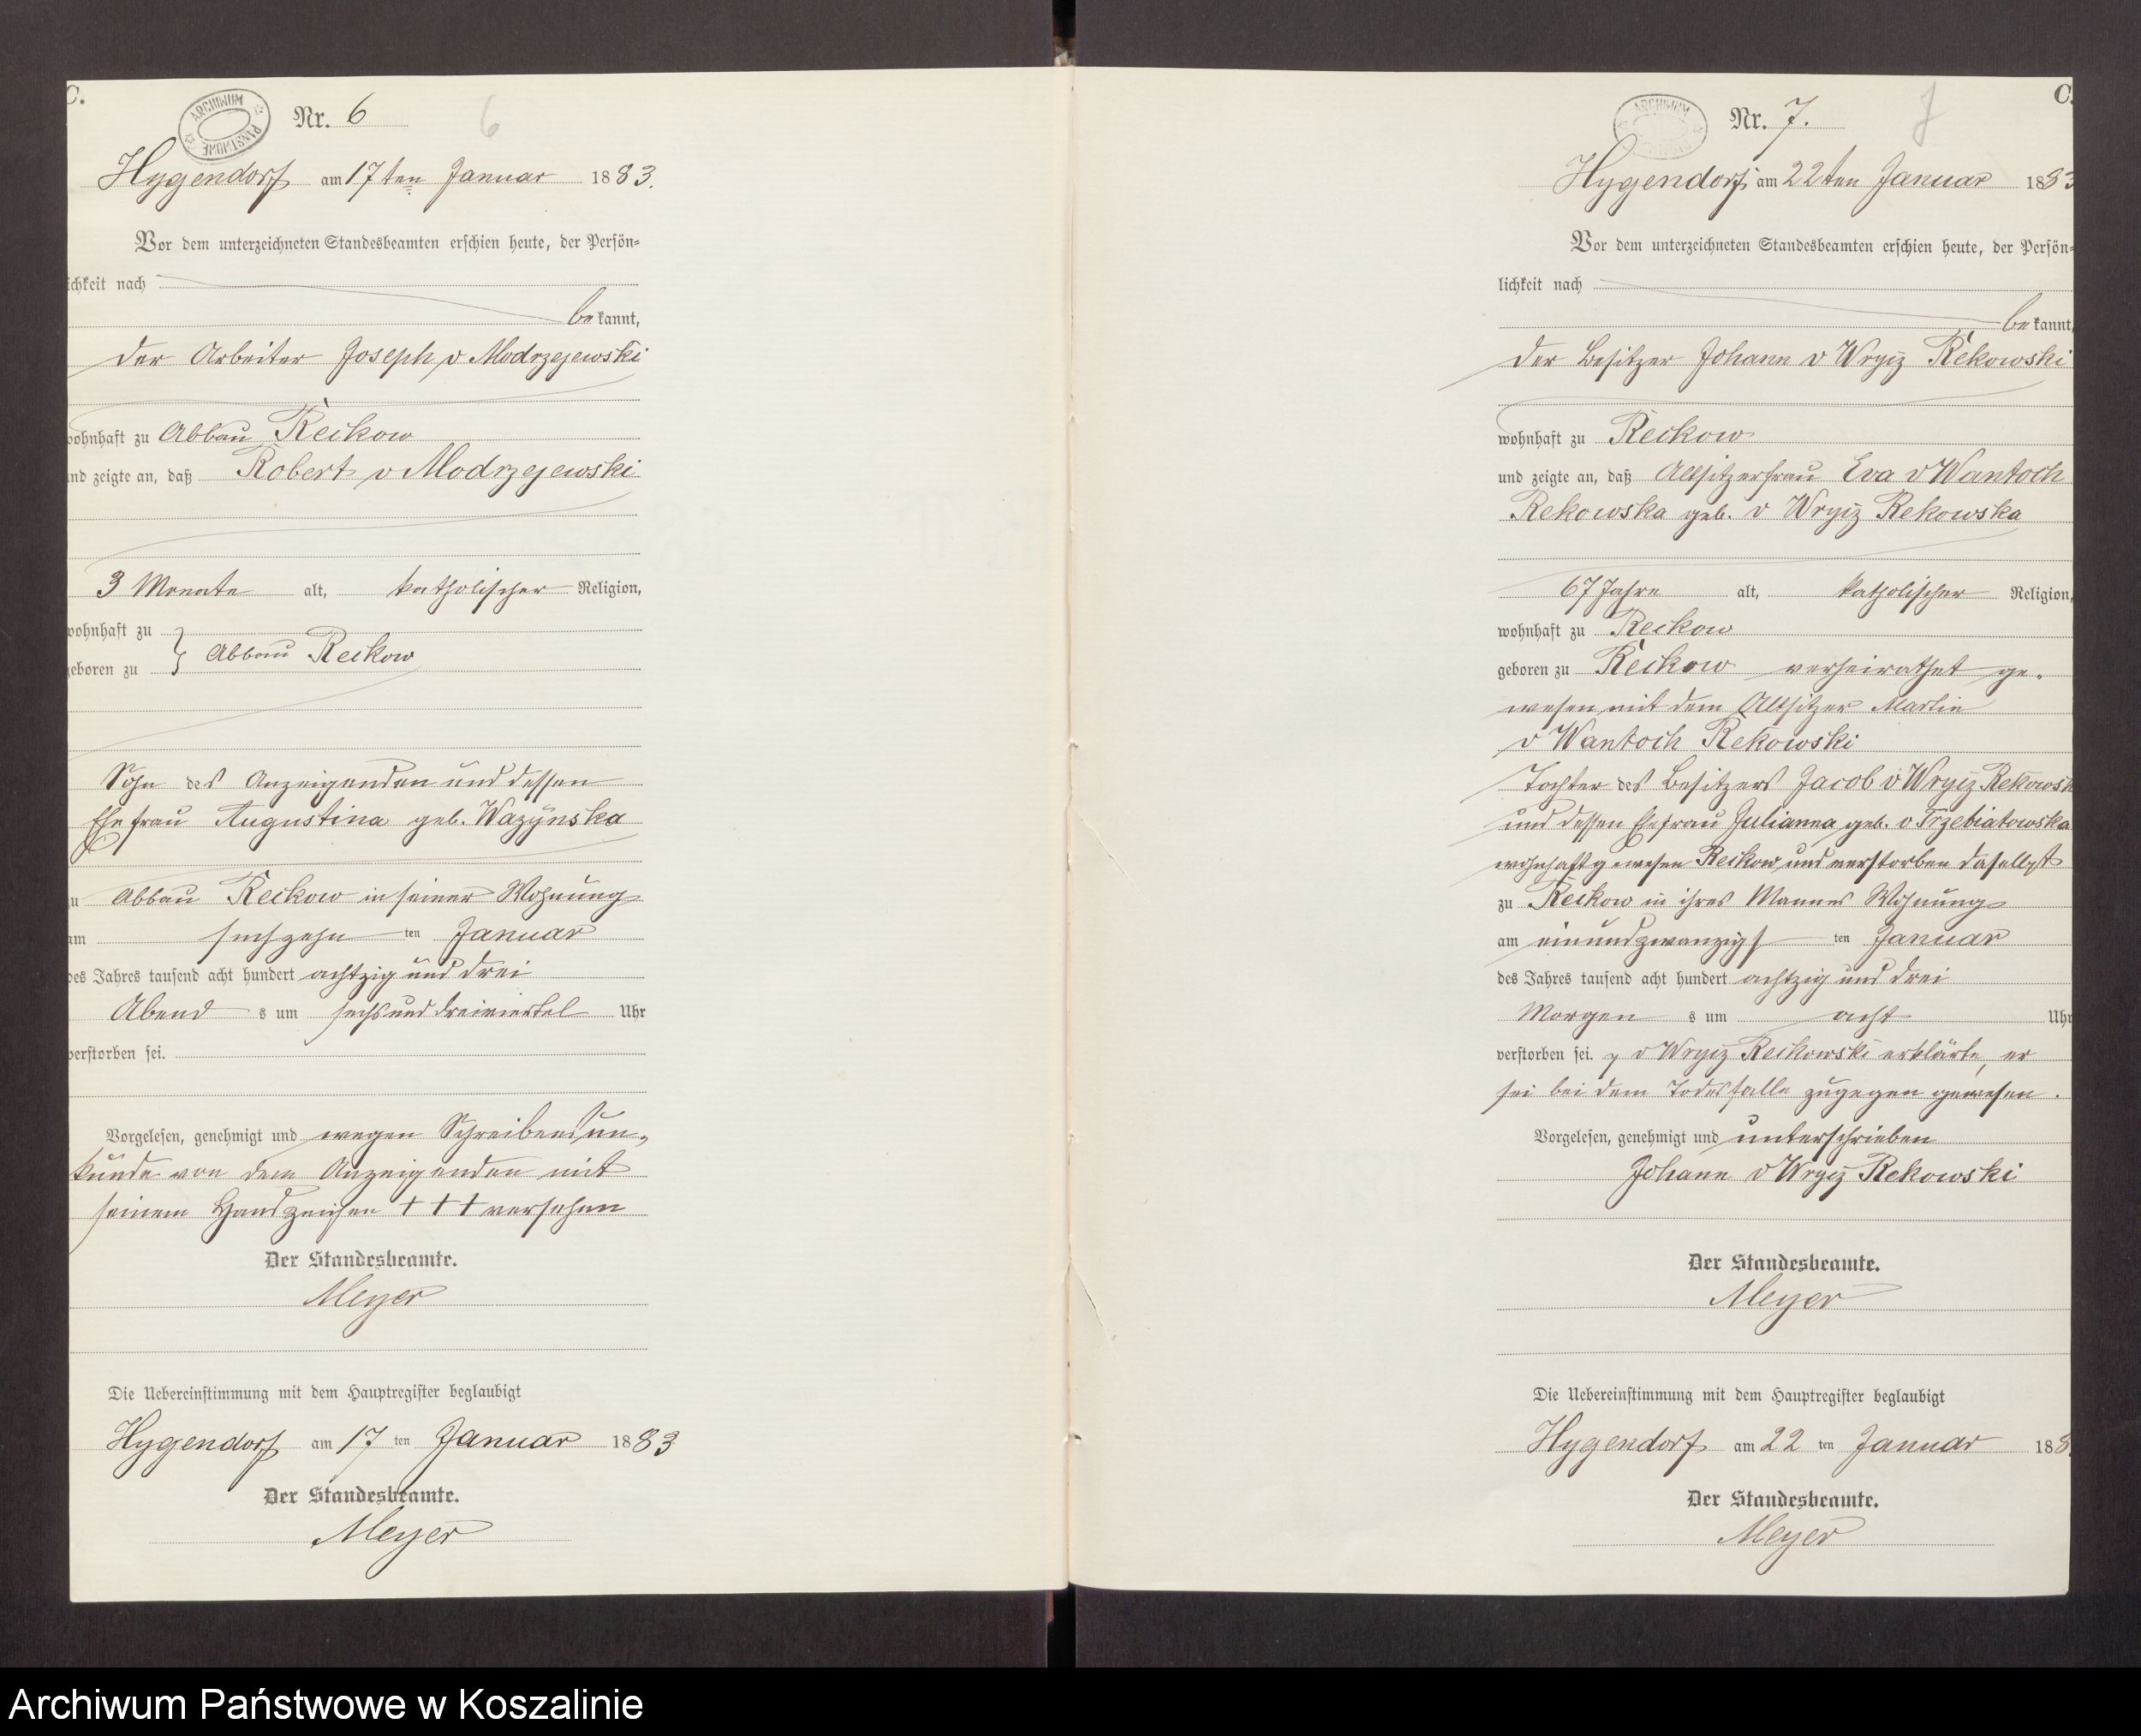 C.
ARCHIWUM PAŃSTWOWE
Nr. 6
6
Hygendorf am 17ten Januar 1883.
Vor dem unterzeichneten Standesbeamten erschien heute, der Persön=
ichkeit nach
bekannt,
der Arbeiter Joseph v Modrzejewski
wohnhaft zu Abbau Reckow
und zeigte an, daß Robert v Modrzejewski
3 Monate alt, katholischer Religion,
wohnhaft zu
geboren zu } Abbau Reckow
Sohn des Anzeigenden und dessen
Ehefrau Augustina geb. Wazynska
zu Abbau Reckow in seiner Wohnung
am sechszehn ten Januar
des Jahres tausend acht hundert achtzig und drei
Abend s um sechs und dreiviertel Uhr
verstorben sei.
Vorgelesen, genehmigt und wegen Schreibensun-
kunde von dem Anzeigenden mit
seinem Handzeichen +++ versehen
Der Standesbeamte.
Meyer
Die Uebereinstimmung mit dem Hauptregister beglaubigt
Hygendorf am 17 ten Januar 1883
Der Standesbeamte.
Meyer
C.
ARCHIWUM
Nr. 7.
7
Hygendorf am 22ten Januar 1883
Vor dem unterzeichneten Standesbeamten erschien heute, der Persön=
lichkeit nach
bekannt,
der Besitzer Johann v Wrycz Rekowski
wohnhaft zu Reckow
und zeigte an, daß Altsitzerfrau Eva v Wantoch
Rekowska geb. v Wrycz Rekowska
67 Jahre alt, katholischer Religion,
wohnhaft zu Reckow
geboren zu Reckow verheirathet ge-
wesen mit dem Altsitzer Martin
v Wantoch Rekowski
Tochter des Besitzers Jacob v Wrycz Rekowsk
und dessen Ehefrau Julianna geb. v Trzebiatowska
wohnhaft gewesen Reckow und verstorben daselbst
zu Reckow in ihres Mannes Wohnung
am einundzwanzigs ten Januar
des Jahres tausend acht hundert achtzig und drei
Morgen s um acht Uhr
verstorben sei. p v Wrycz Reckowski erklärte, er
sei bei dem Todesfalle zugegen gewesen.
Vorgelesen, genehmigt und unterschrieben
Johann v Wrycz Rekowski
Der Standesbeamte.
Meyer
Die Uebereinstimmung mit dem Hauptregister beglaubigt
Hygendorf am 22 ten Januar 188
Der Standesbeamte.
Meyer
Archiwum Państwowe w Koszalinie